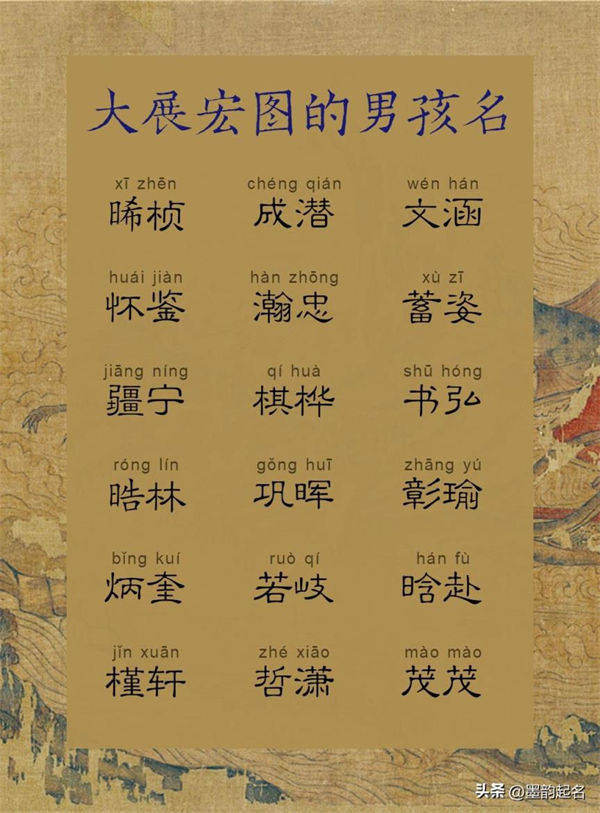 大展宏图的男孩名
xī zhēn chéng qián wén hán
晞桢 成潜 文涵
huái jiàn hàn zhōng xù zī
怀鉴 瀚忠 蓄姿
jiāng níng qí huà shū hóng
疆宁 棋桦 书弘
róng lín gǒng huī zhāng yú
晧林 巩晖 彰瑜
bǐng kuí ruò qí hán fù
炳奎 若岐 晗赴
jǐn xuān zhé xiāo mào mào
槿轩 哲潇 茂茂
头条 @墨韵起名